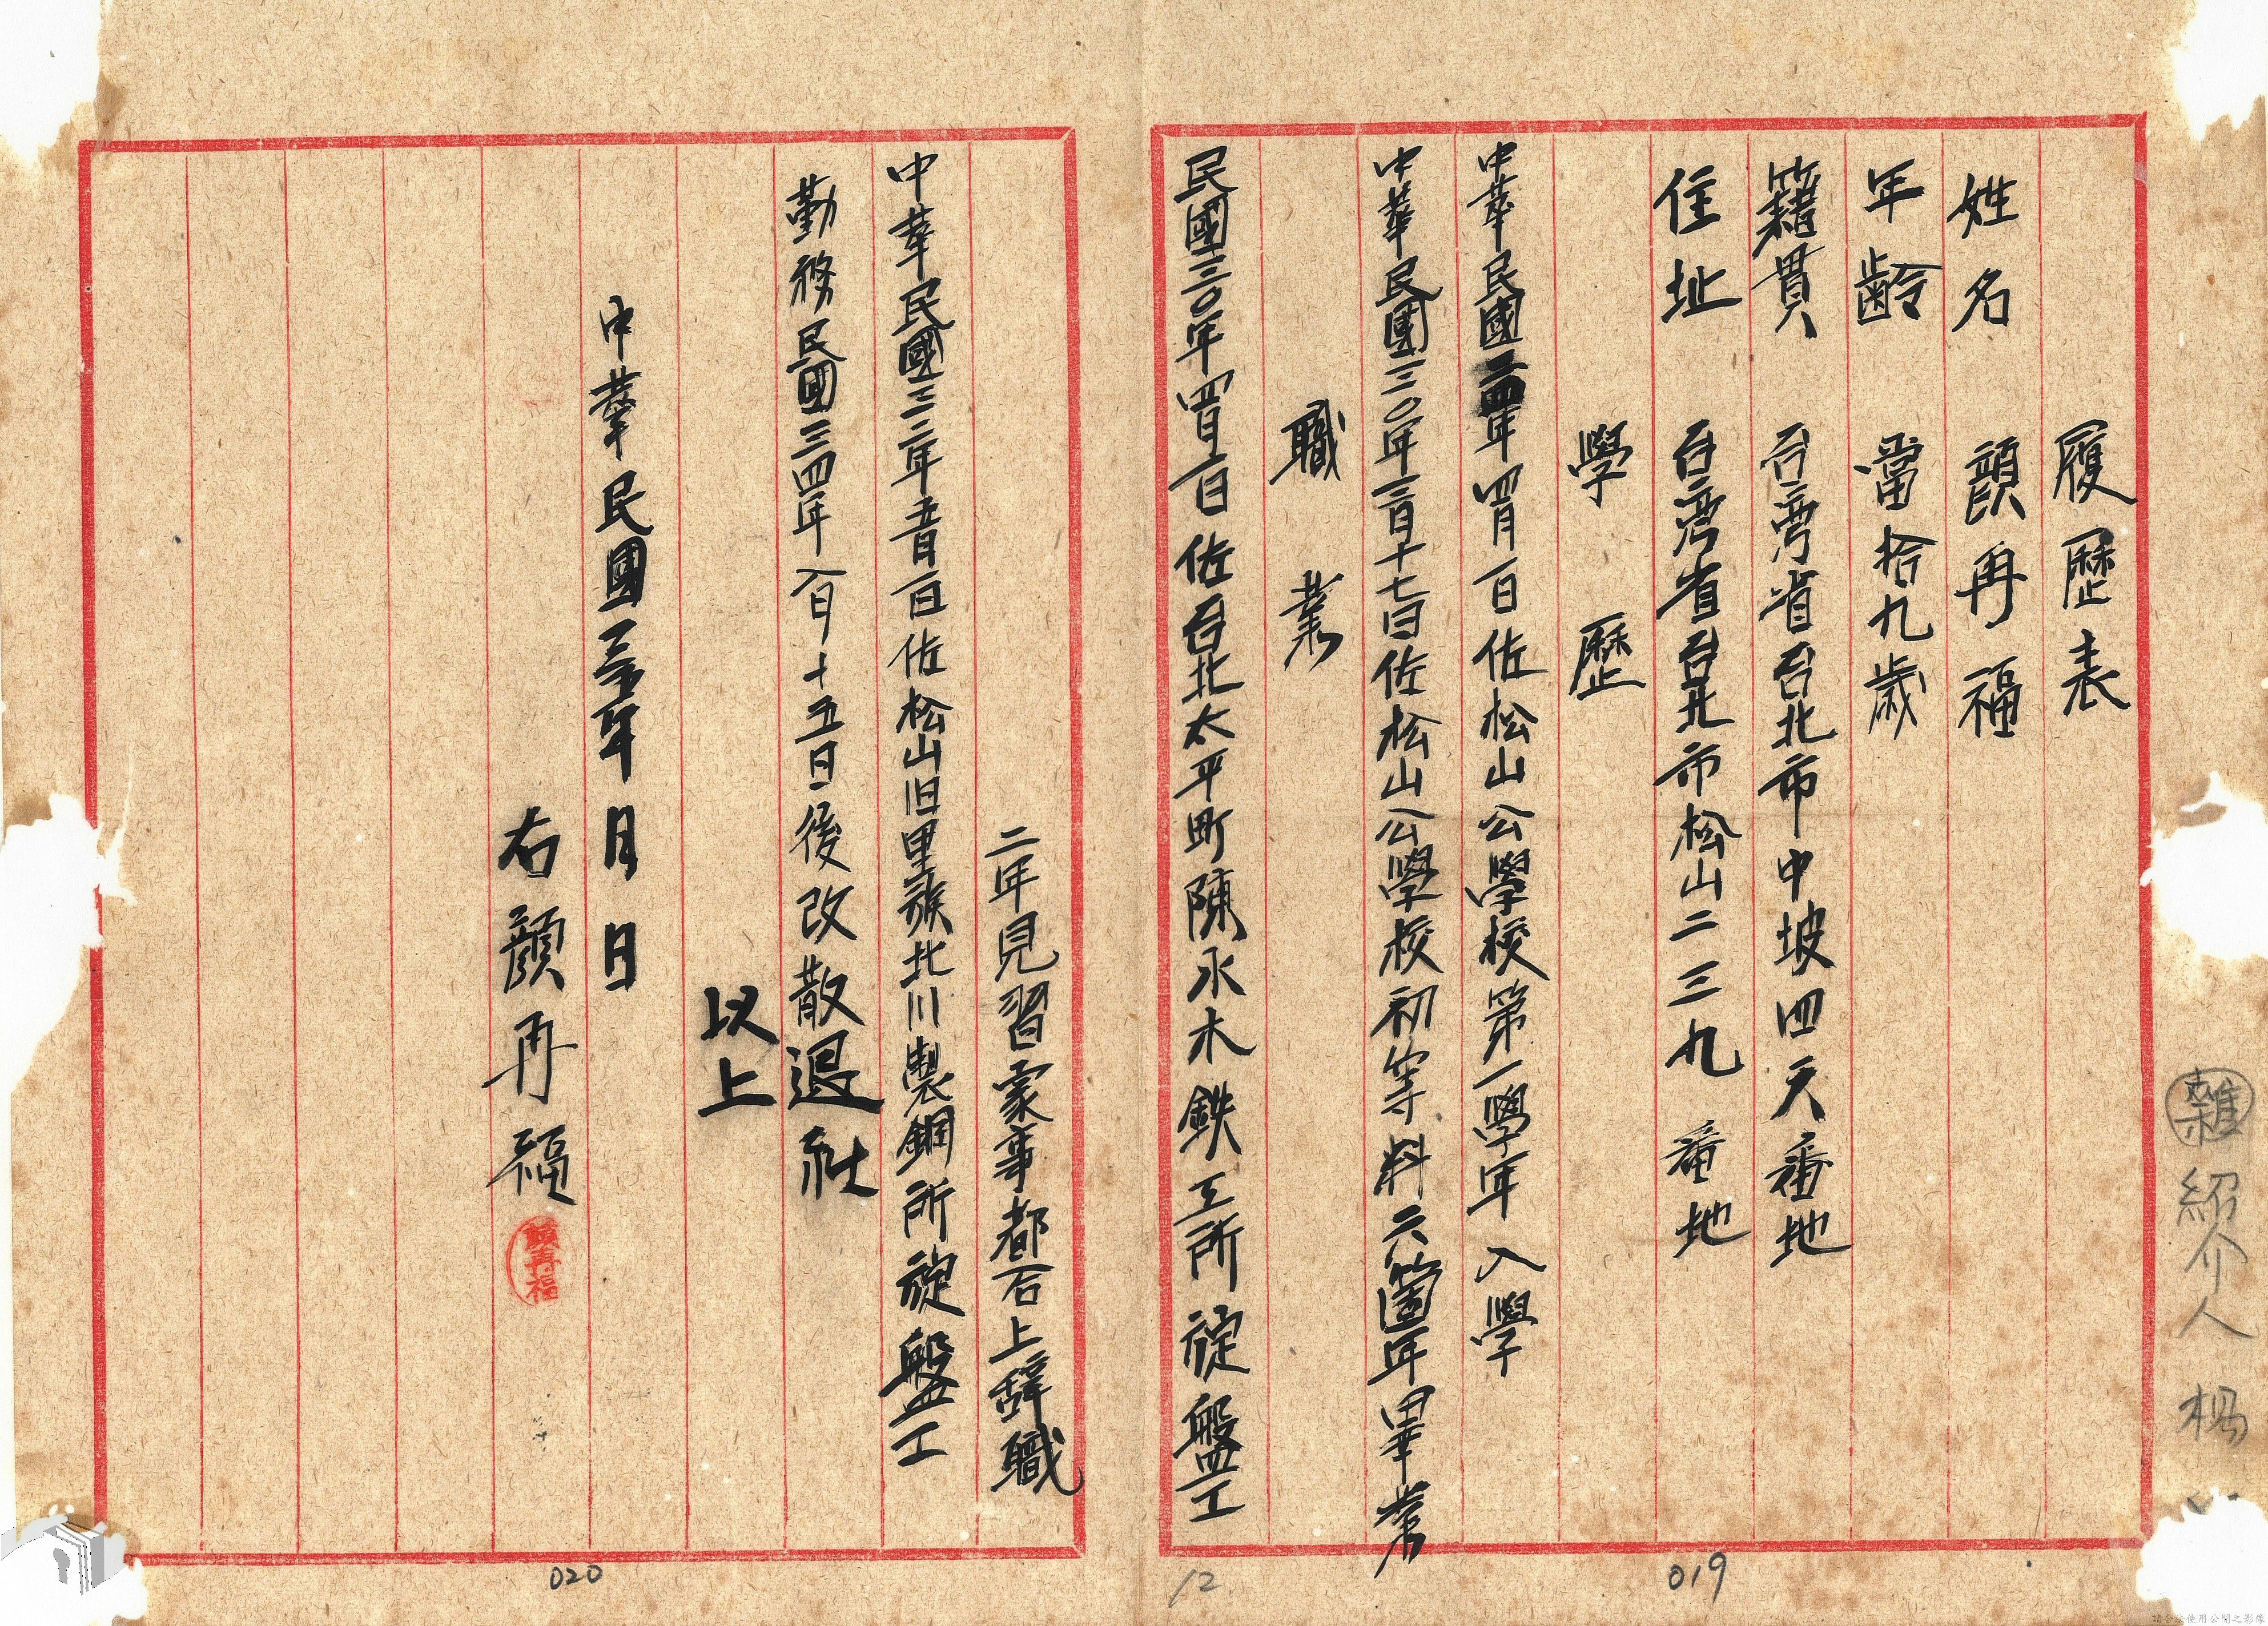 履歷表
姓名 顔再福
年齡 當拾九歲
籍貫 台湾省台北市中坡四天番地
住址 台湾省台北市松山二三九番地
學歷
中華民國二四年四月一日佐松山公學校第一學年入學
中華民國三〇年三月十七日佐松山公學校初等料六箇年畢業
職業
民國三〇年四月一日佐台北太平町陳水木鉄工所旋盤工
二年見習家事都合上辭職
中華民國三二年五月一日佐松山旧里族北川製鋼所旋盤工
勤務民國三四年八月十五日後改散退社
以上
中華民國 年 月 日
右顔再福
顔再福
雜 紹介人 楊
019
12
020
請合法使用公開之影像